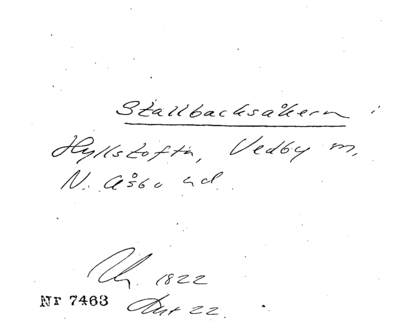 Stallbacksåkern i
Hyllstofta, Vedby m,
N. Åsbo hd.
1822
Nr 7463
22.